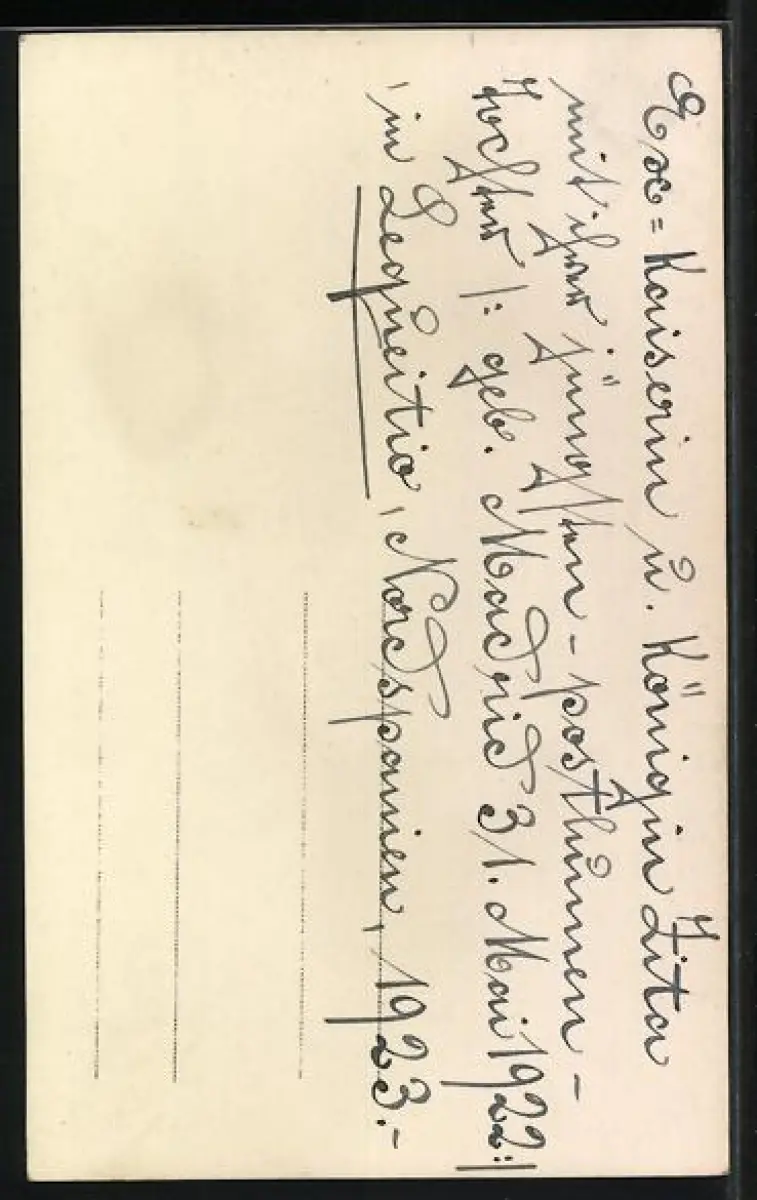 Ex=Kaiserin u. Königin Zita
mit ihrer jüngsten - posthumen -
Tochter |: geb. Madrid 31. Mai 1922:|
in Lequeitio, Nordspanien, 1923.-